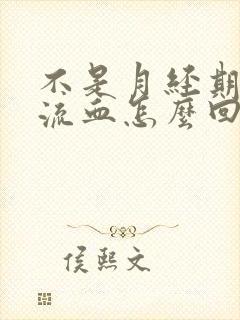 不是月经期
流血怎麼回
侯熙文